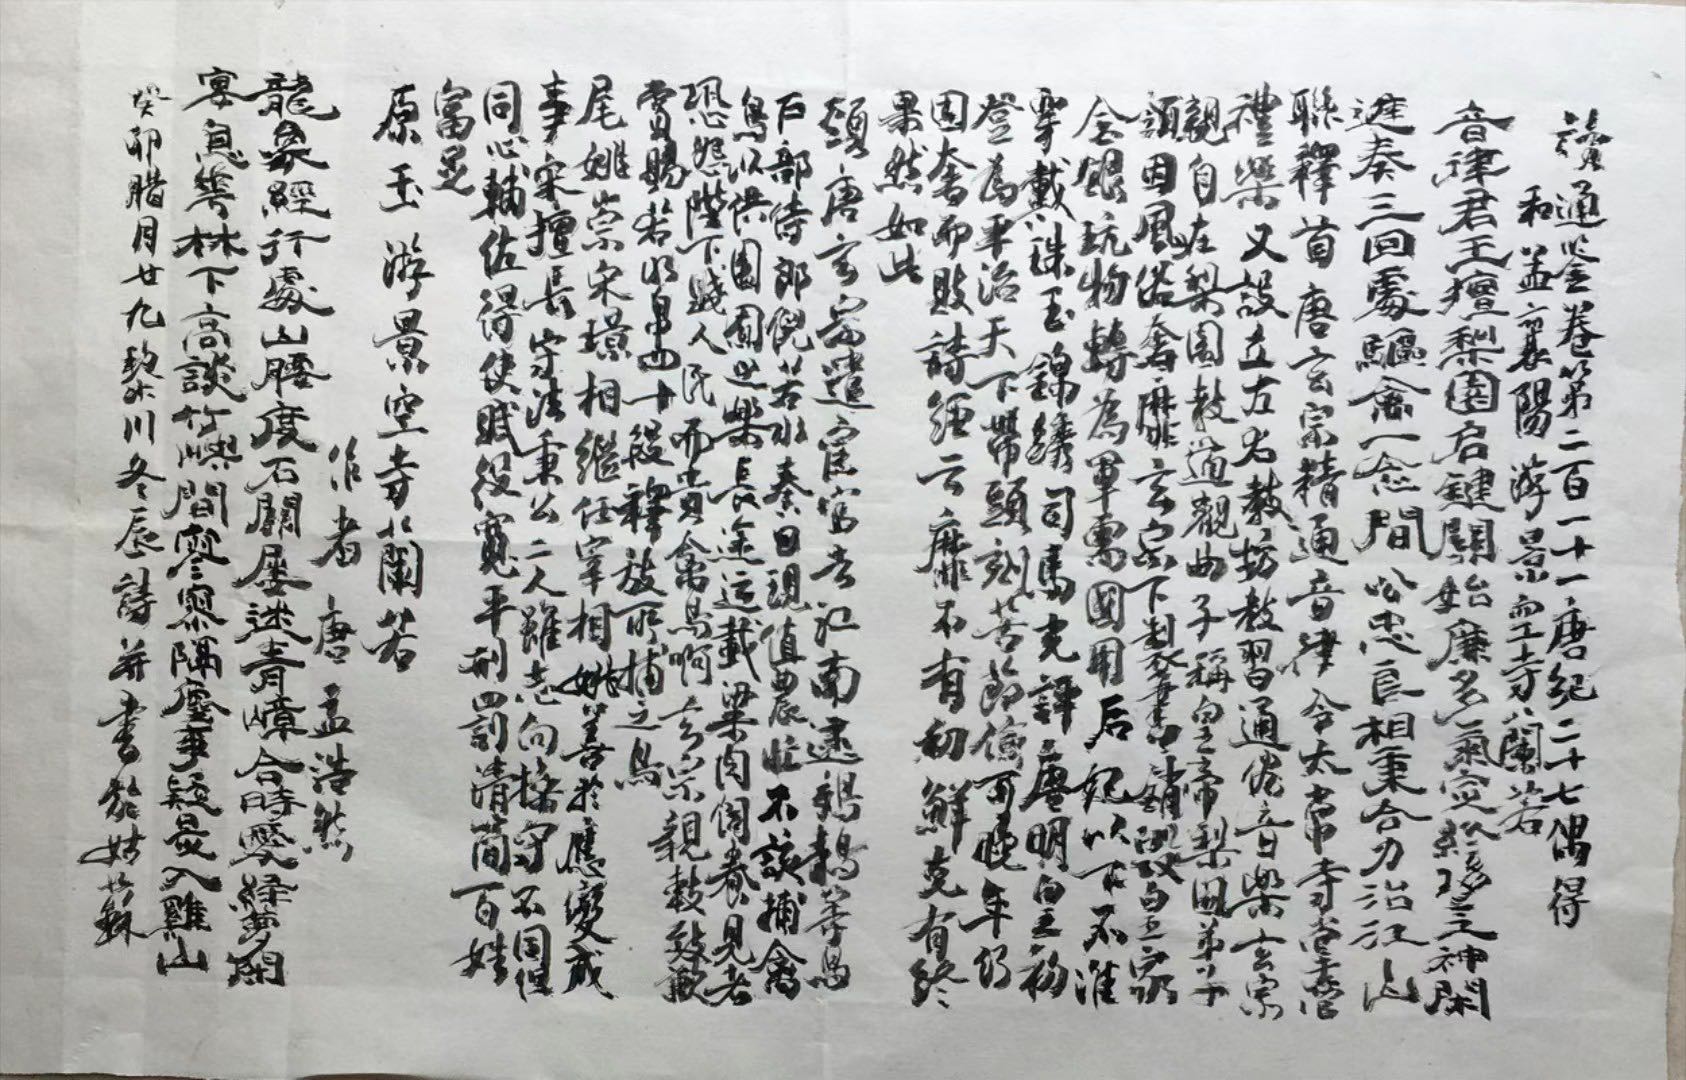 讀通鑒卷第二百一十一唐紀二十七偶得
和孟襄陽游景空寺蘭若
音律君王擅梨園启鍵關始廉名氣定終神閑
進奏三回處驅禽一念間公忠良相秉合力治江山
聯釋首唐玄宗精通音律令太常寺壹管
禮樂又設立左右教坊教習通俗音樂玄宗
親自在梨園教道觀曲子稱皇帝梨園弟子
頭因風俗奢靡玄宗下制書銷毀皇家
金銀玩物轉為軍需國用后妃以下不准
穿戴珠玉錦繡司馬光評唐明皇初
登為平治天下帶頭刻苦節儉可晚年仍
因奢而敗詩經云靡不有初鮮克有終
果然如此
頸唐玄宗遣宦官去江南逮鵁鶄等鳥
户部侍郎倪若水奏曰現值農忙不該捕禽
鳥以供園囿之樂長途运載粱肉飼養見者
恐怨陛下賤人民而貴禽鳥啊玄宗親敕致歉
賞賜若水帛四十段釋放所捕之鳥
尾姚崇宋璟相繼任宰相姚善於應變成
事宋擅長守法秉公二人雖志向操守不同但
同心輔佐得使賦役寬平刑罰清簡百姓
富足
原玉 游景空寺蘭若
作者 唐 孟浩然
龍象經行處山腰度石關屋迷青嶂合時愛綠蘿閑
宴息花林下高談竹嶼間寥寥隔塵事疑是入雞山
癸卯腊月廿九黎川冬辰詩并書於姑蘇